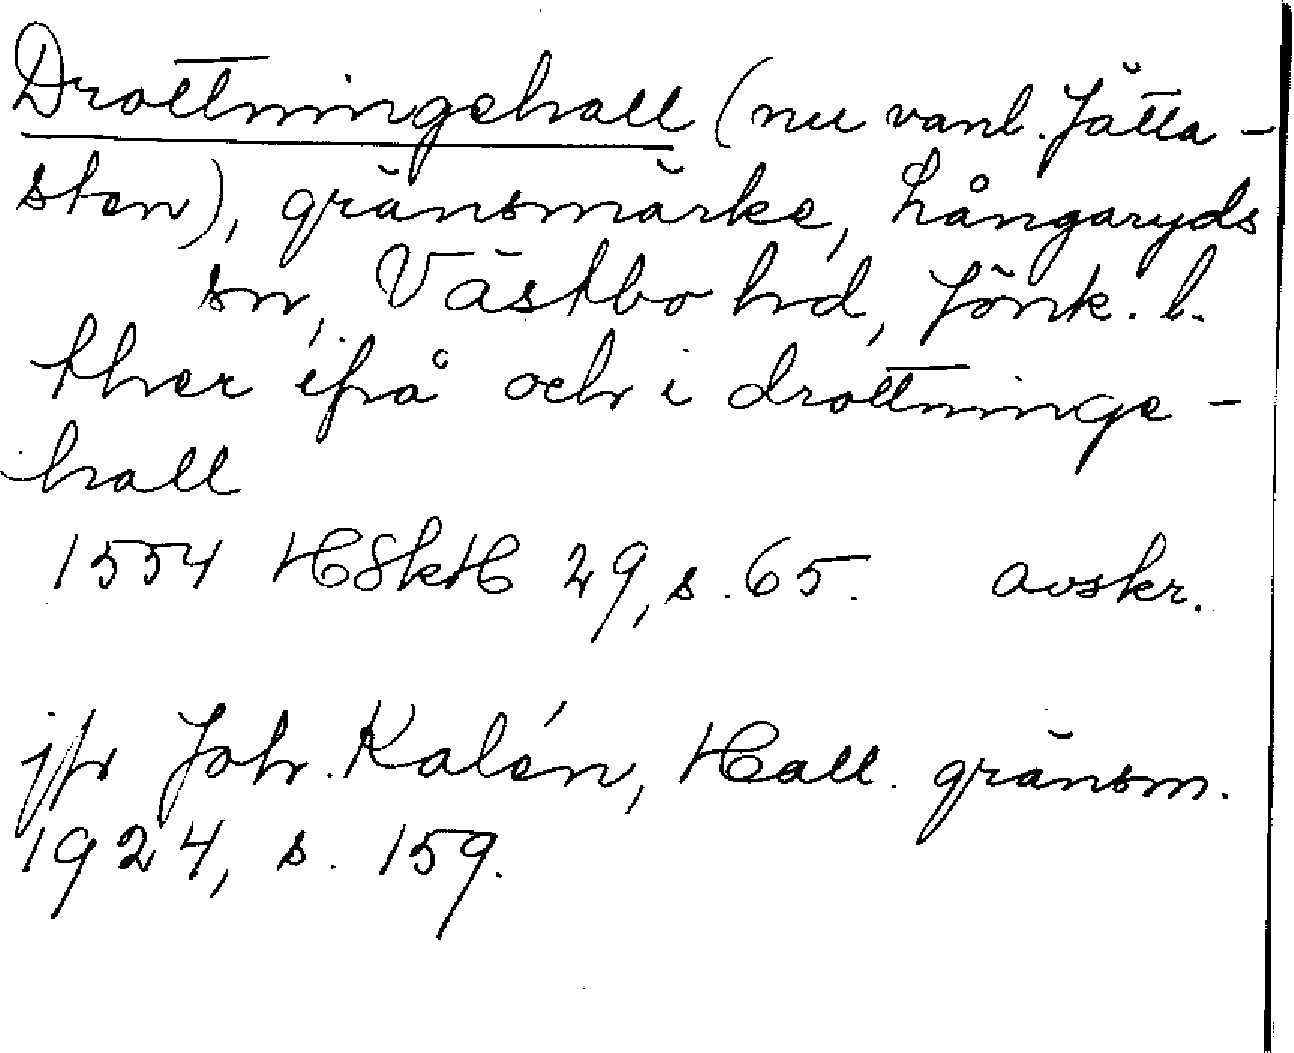 Drottningehall (nu vanl. Jätta-
sten), gränsmärke, Långaryds
sn, Västbo hd, Jönk. l.
ther ifrå och i drottninge-
hall
1554 HSkH 29, s. 65. avskr.
jfr Joh. Kalén, Hall. gränsm.
1924, s. 159.